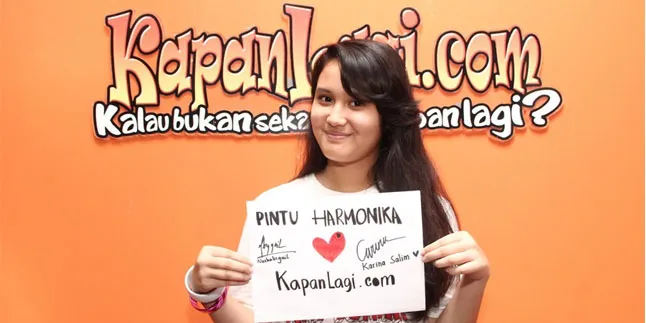 KapanLagi.com
Kalau bukan seka pan lagi?
PINTU HARMONIKA
Karina Salim
KapanLagi.com